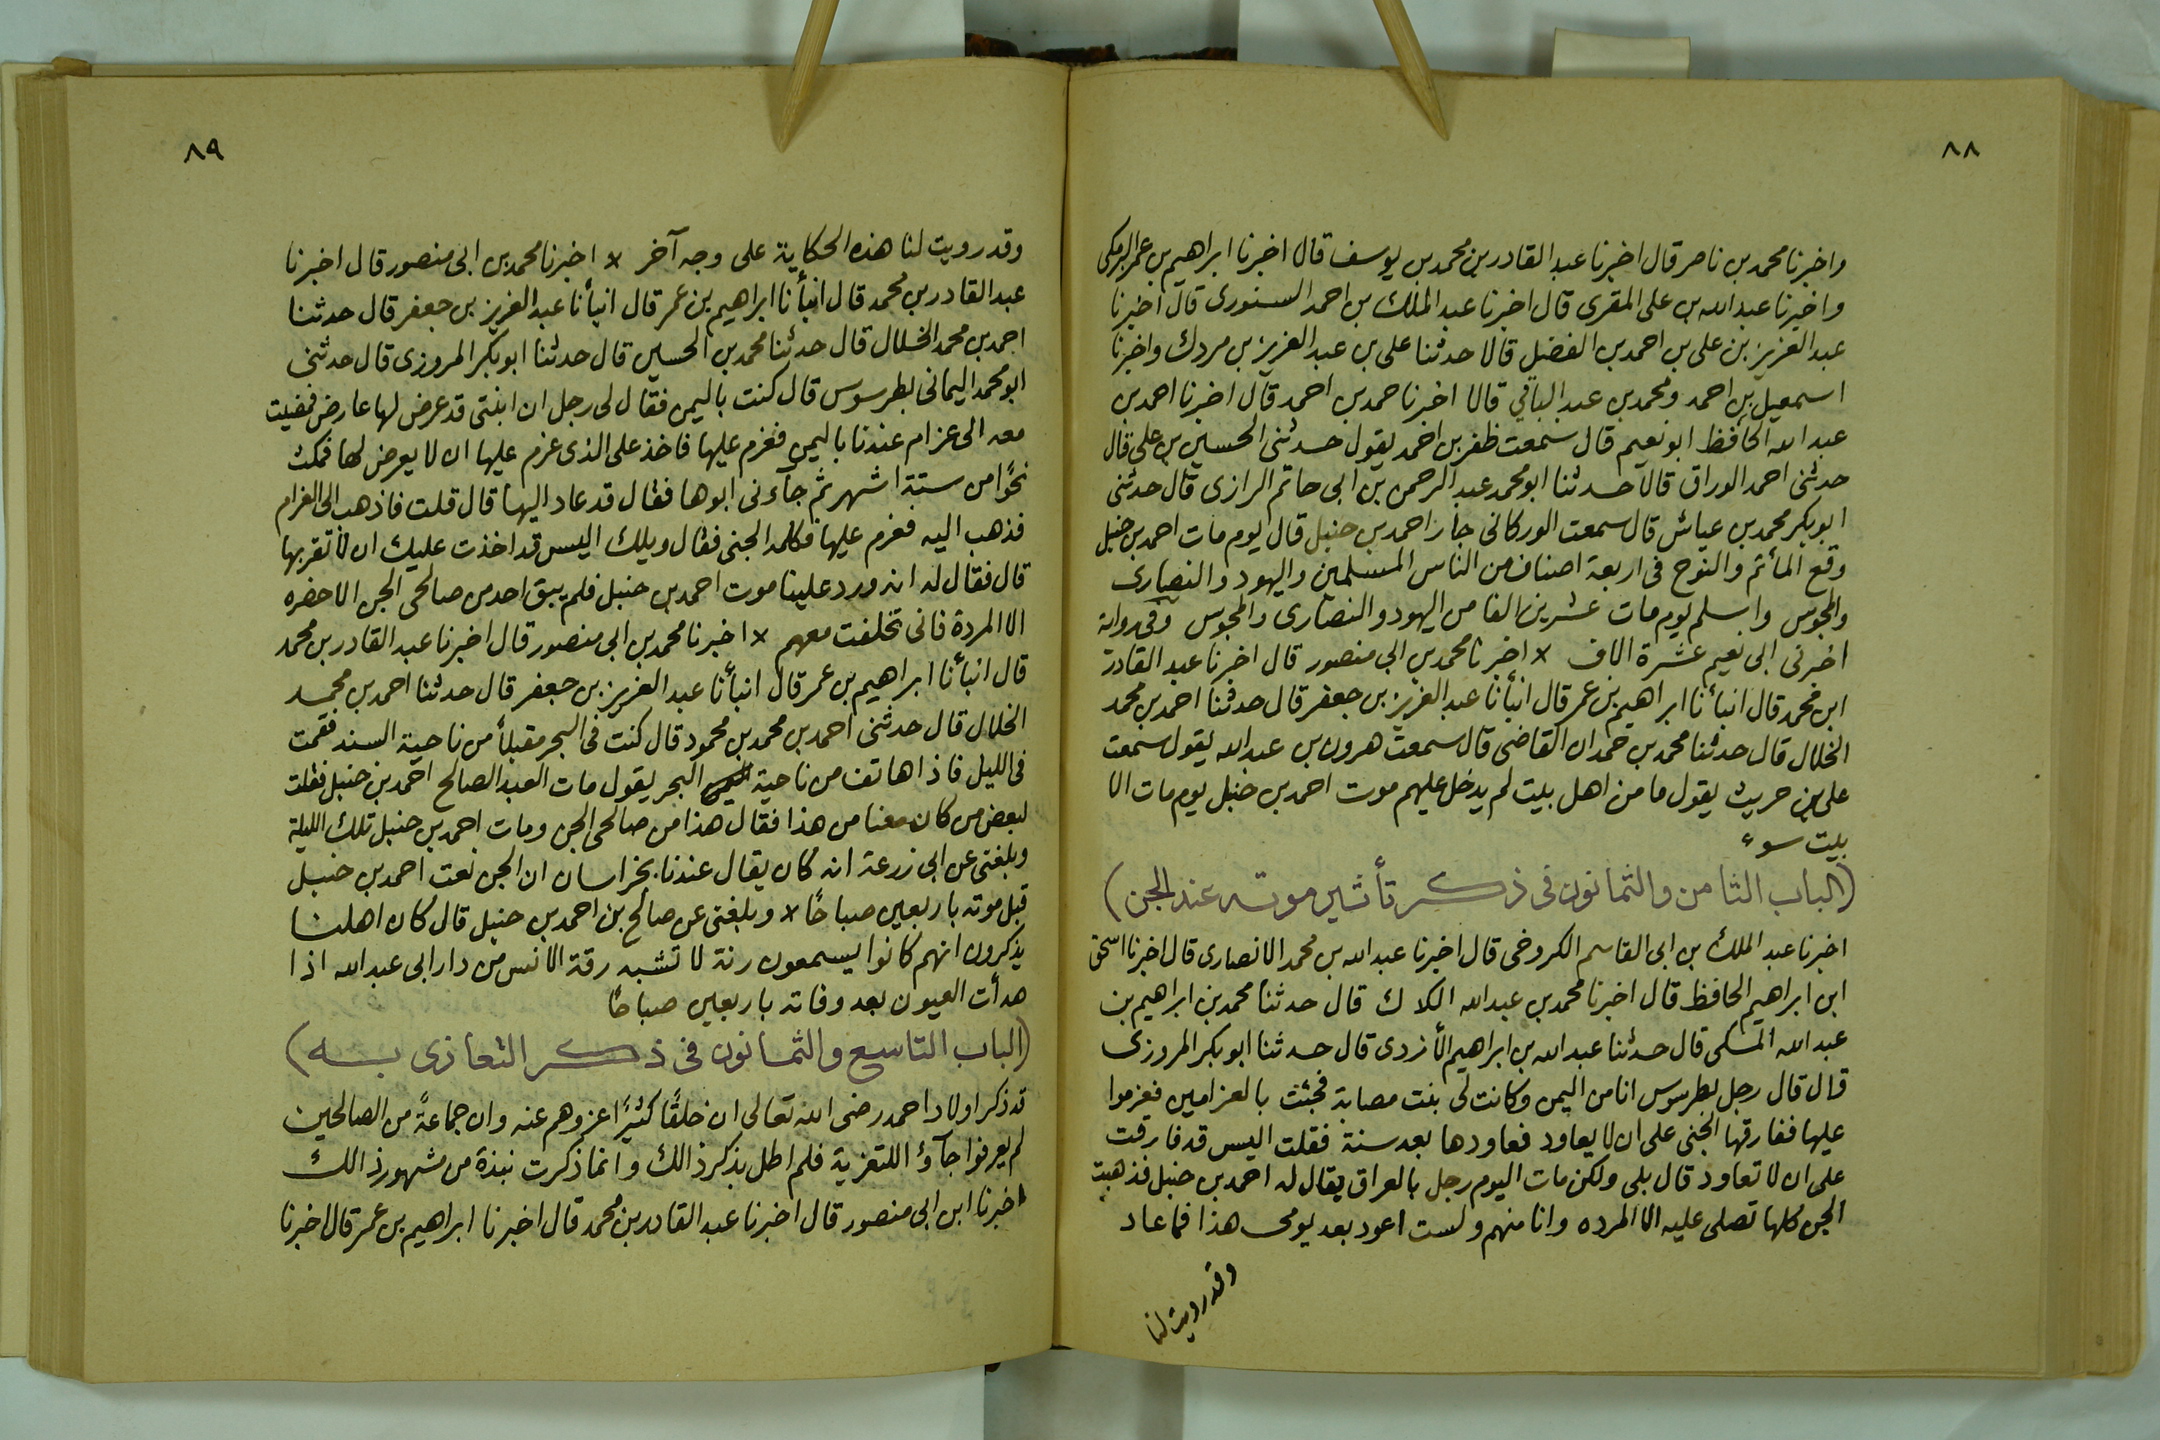 ٨٨
واخبرنا محمد بن ناصر قال اخبرنا عبد القادر بن محمد بن يوسف قال اخبرنا ابراهيم بن عمر البرمكى
واخبرنا عبد الله بن على المقرى قال اخبرنا عبد الملك بن احمد السنورى قال اخبرنا
عبد العزيز بن على بن احمد بن الفضل قالا حدثنا على بن عبد العزيز بن مردك واخبرنا
اسمعيل بن احمد ومحمد بن عبد الباقي قالا اخبرنا حمد بن احمد قال اخبرنا احمد بن
عبد الله الحافظ ابو نعيم قال سمعت ظفر بن احمد يقول حدثنى الحسين بن على قال
حدثنى احمد الوراق قالا حدثنا ابو محمد عبد الرحمن بن ابى حاتم الرازى قال حدثنى
ابو بكر محمد بن عباش قال سمعت الوركانى جار احمد بن حنبل قال يوم مات احمد بن حنبل
وقع المأتم والنوح فى اربعة اصناف من الناس المسلمين واليهود والنصارى
والمجوس واسلم يوم مات عشرين الفا من اليهود والنصارى والمجوس وفى رواية
اخرنى ابى نعيم عشرة الاف × اخبرنا محمد بن ابى منصور قال اخبرنا عبد القادر
ابن محمد قال انبأنا ابراهيم بن عمر قال انبأنا عبد العزيز بن جعفر قال حدثنا احمد بن محمد
الخلال قال حدثنا محمد بن حمدان القاضى قال سمعت هرون بن عبد الله يقول سمعت
على بن حريث يقول ما من اهل بيت لم يدخل عليهم موت احمد بن حنبل يوم مات الا
بيت سوء
(الباب الثامن والثمانون فى ذكر تأثير موته عند الجن)
اخبرنا عبد الملك بن ابى القاسم الكروخى قال اخبرنا عبد الله بن محمد الانصارى قال اخبرنا اسحق
ابن ابراهيم الحافظ قال اخبرنا محمد بن عبد الله الكلاك قال حدثنا محمد بن ابراهيم بن
عبد الله المسكى قال حدثنا عبد الله بن ابراهيم الأزدى قال حدثنا ابو بكر المروزى
قال قال رجل بطرسوس انا من اليمن وكانت لى بنت مصابة فجئت بالعزامين فعزموا
عليها ففارقها الجنى على ان لا يعاود فعاودها بعد سنة فقلت اليس قد فارقت
على ان لا تعاود قال بلى ولكن مات اليوم رجل بالعراق يقال له احمد بن حنبل فذهبت
الجن كلها تصلى عليه الا المرده وانا منهم ولست اعود بعد يومى هذا فما عاد
وقد رويت لنا
٨٩
وقد رويت لنا هذه الحكاية على وجه آخر × اخبرنا محمد بن ابى منصور قال اخبرنا
عبد القادر بن محمد قال انبأنا ابراهيم بن عمر قال انبأنا عبد العزيز بن جعفر قال حدثنا
احمد بن محمد الخلال قال حدثنا محمد بن الحسين قال حدثنا ابو بكر المروزى قال حدثنى
ابو محمد اليمانى بطرسوس قال كنت باليمن فقال لى رجل ان ابنتى قد عرض لها عارض فمضيت
معه الى عزام عندنا باليمن فعزم عليها فاخذ على الذى عزم عليها ان لا يعرض لها فمكث
نحوًا من ستة اشهر ثم جآءنى ابوها فقال قد عاد اليها قال قلت فاذهب الى العزام
فذهب اليه فعزم عليها فكلمه الجنى فقال ويلك اليس قد اخذت عليك ان لا تقربها
قال فقال له انه ورد علينا موت احمد بن حنبل فلم يبق احد من صالحى الجن الا حضره
الا المردة فانى تخلفت معهم × اخبرنا محمد بن ابى منصور قال اخبرنا عبد القادر بن محمد
قال انبأنا ابراهيم بن عمر قال انبأنا عبد العزيز بن جعفر قال حدثنا احمد بن محمد
الخلال قال حدثنى احمد بن محمد بن محمود قال كنت فى البحر مقبلاً من ناحية السند فقمت
فى الليل فاذا هاتف من ناحية البحر يقول مات العبد الصالح احمد بن حنبل فقلت
لبعض من كان معنا من هذا فقال هذا من صالحى الجن ومات احمد بن حنبل تلك الليلة
وبلغنى عن ابى زرعة انه كان يقال عندنا بخراسان ان الجن نعت احمد بن حنبل
قبل موته باربعين صباحًا × وبلغنى عن صالح بن احمد بن حنبل قال كان اهلنا
يذكرون انهم كانوا يسمعون رنة لا تشبه رقة الانس من دار ابى عبد الله اذا
هدأت العيون بعد وفاته باربعين صباحًا
(الباب التاسع والثمانون فى ذكر التعازى به)
قد ذكر اولاد احمد رضى الله تعالى ان خلقًا كثيرًا عزوهم عنه وان جماعةً من الصالحين
لم يعرفوا جآؤا للتعزية فلم اطل بذكر ذالك وانما ذكرت نبذة من مشهور ذالك
اخبرنا ابن ابى منصور قال اخبرنا عبد القادر بن محمد قال اخبرنا ابراهيم بن عمر قال اخبرنا